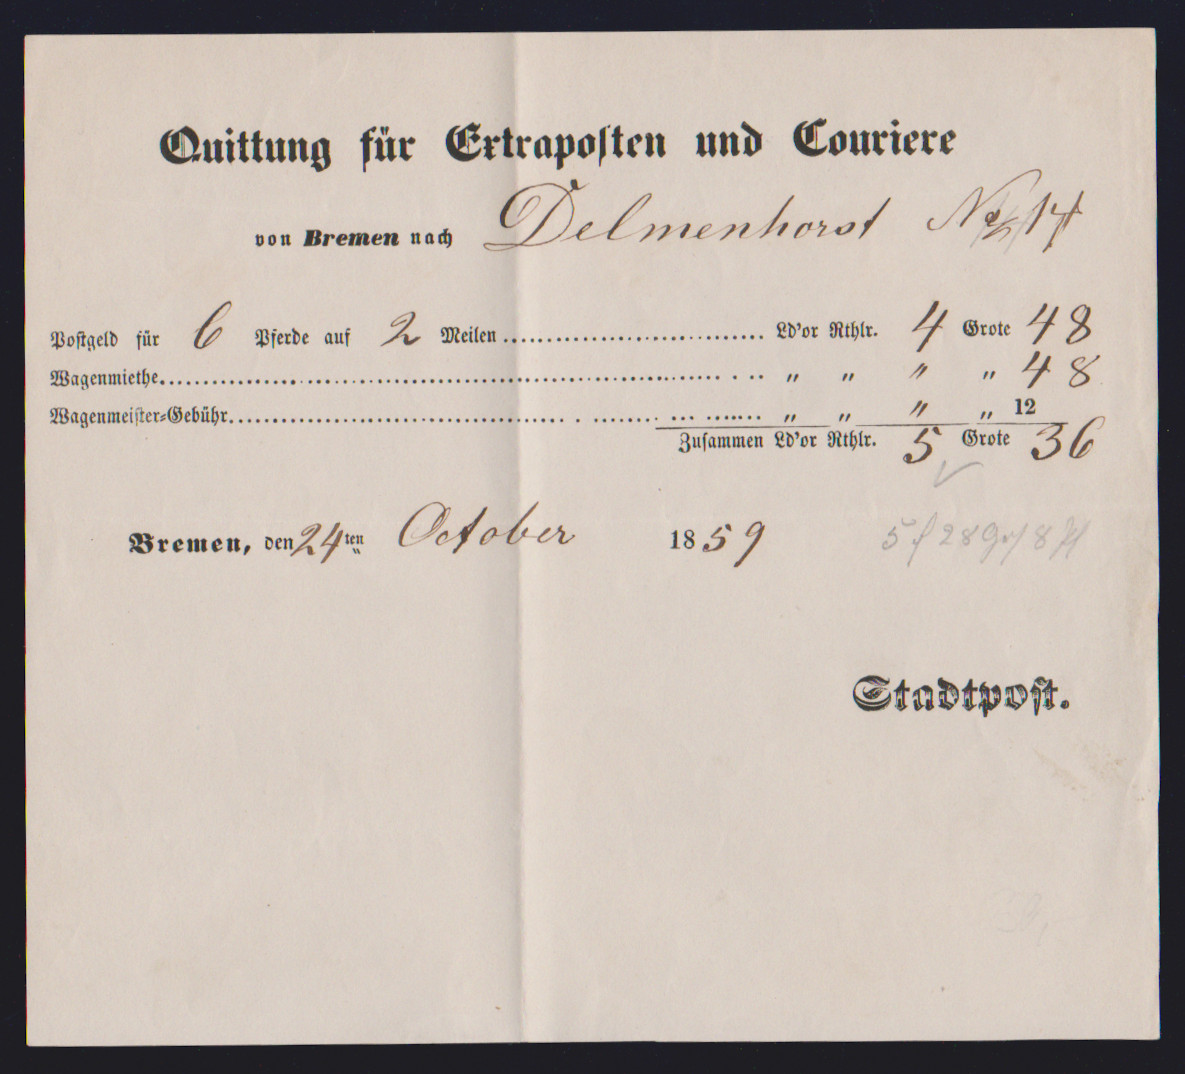 Quittung für Extraposten und Couriere
von Bremen nach Delmenhorst No 14
Postgeld für 6 Pferde auf 2 Meilen .............................. Ld'or Rthlr. 4 Grote 48
Wagenmiethe.............................. „ „ „ „ 48
Wagenmeister-Gebühr.............................. „ „ „ „ 12
Zusammen Ld'or Rthlr. 5 Grote 36
Bremen, den 24ten October 1859
5 28 8
Stadtpost.